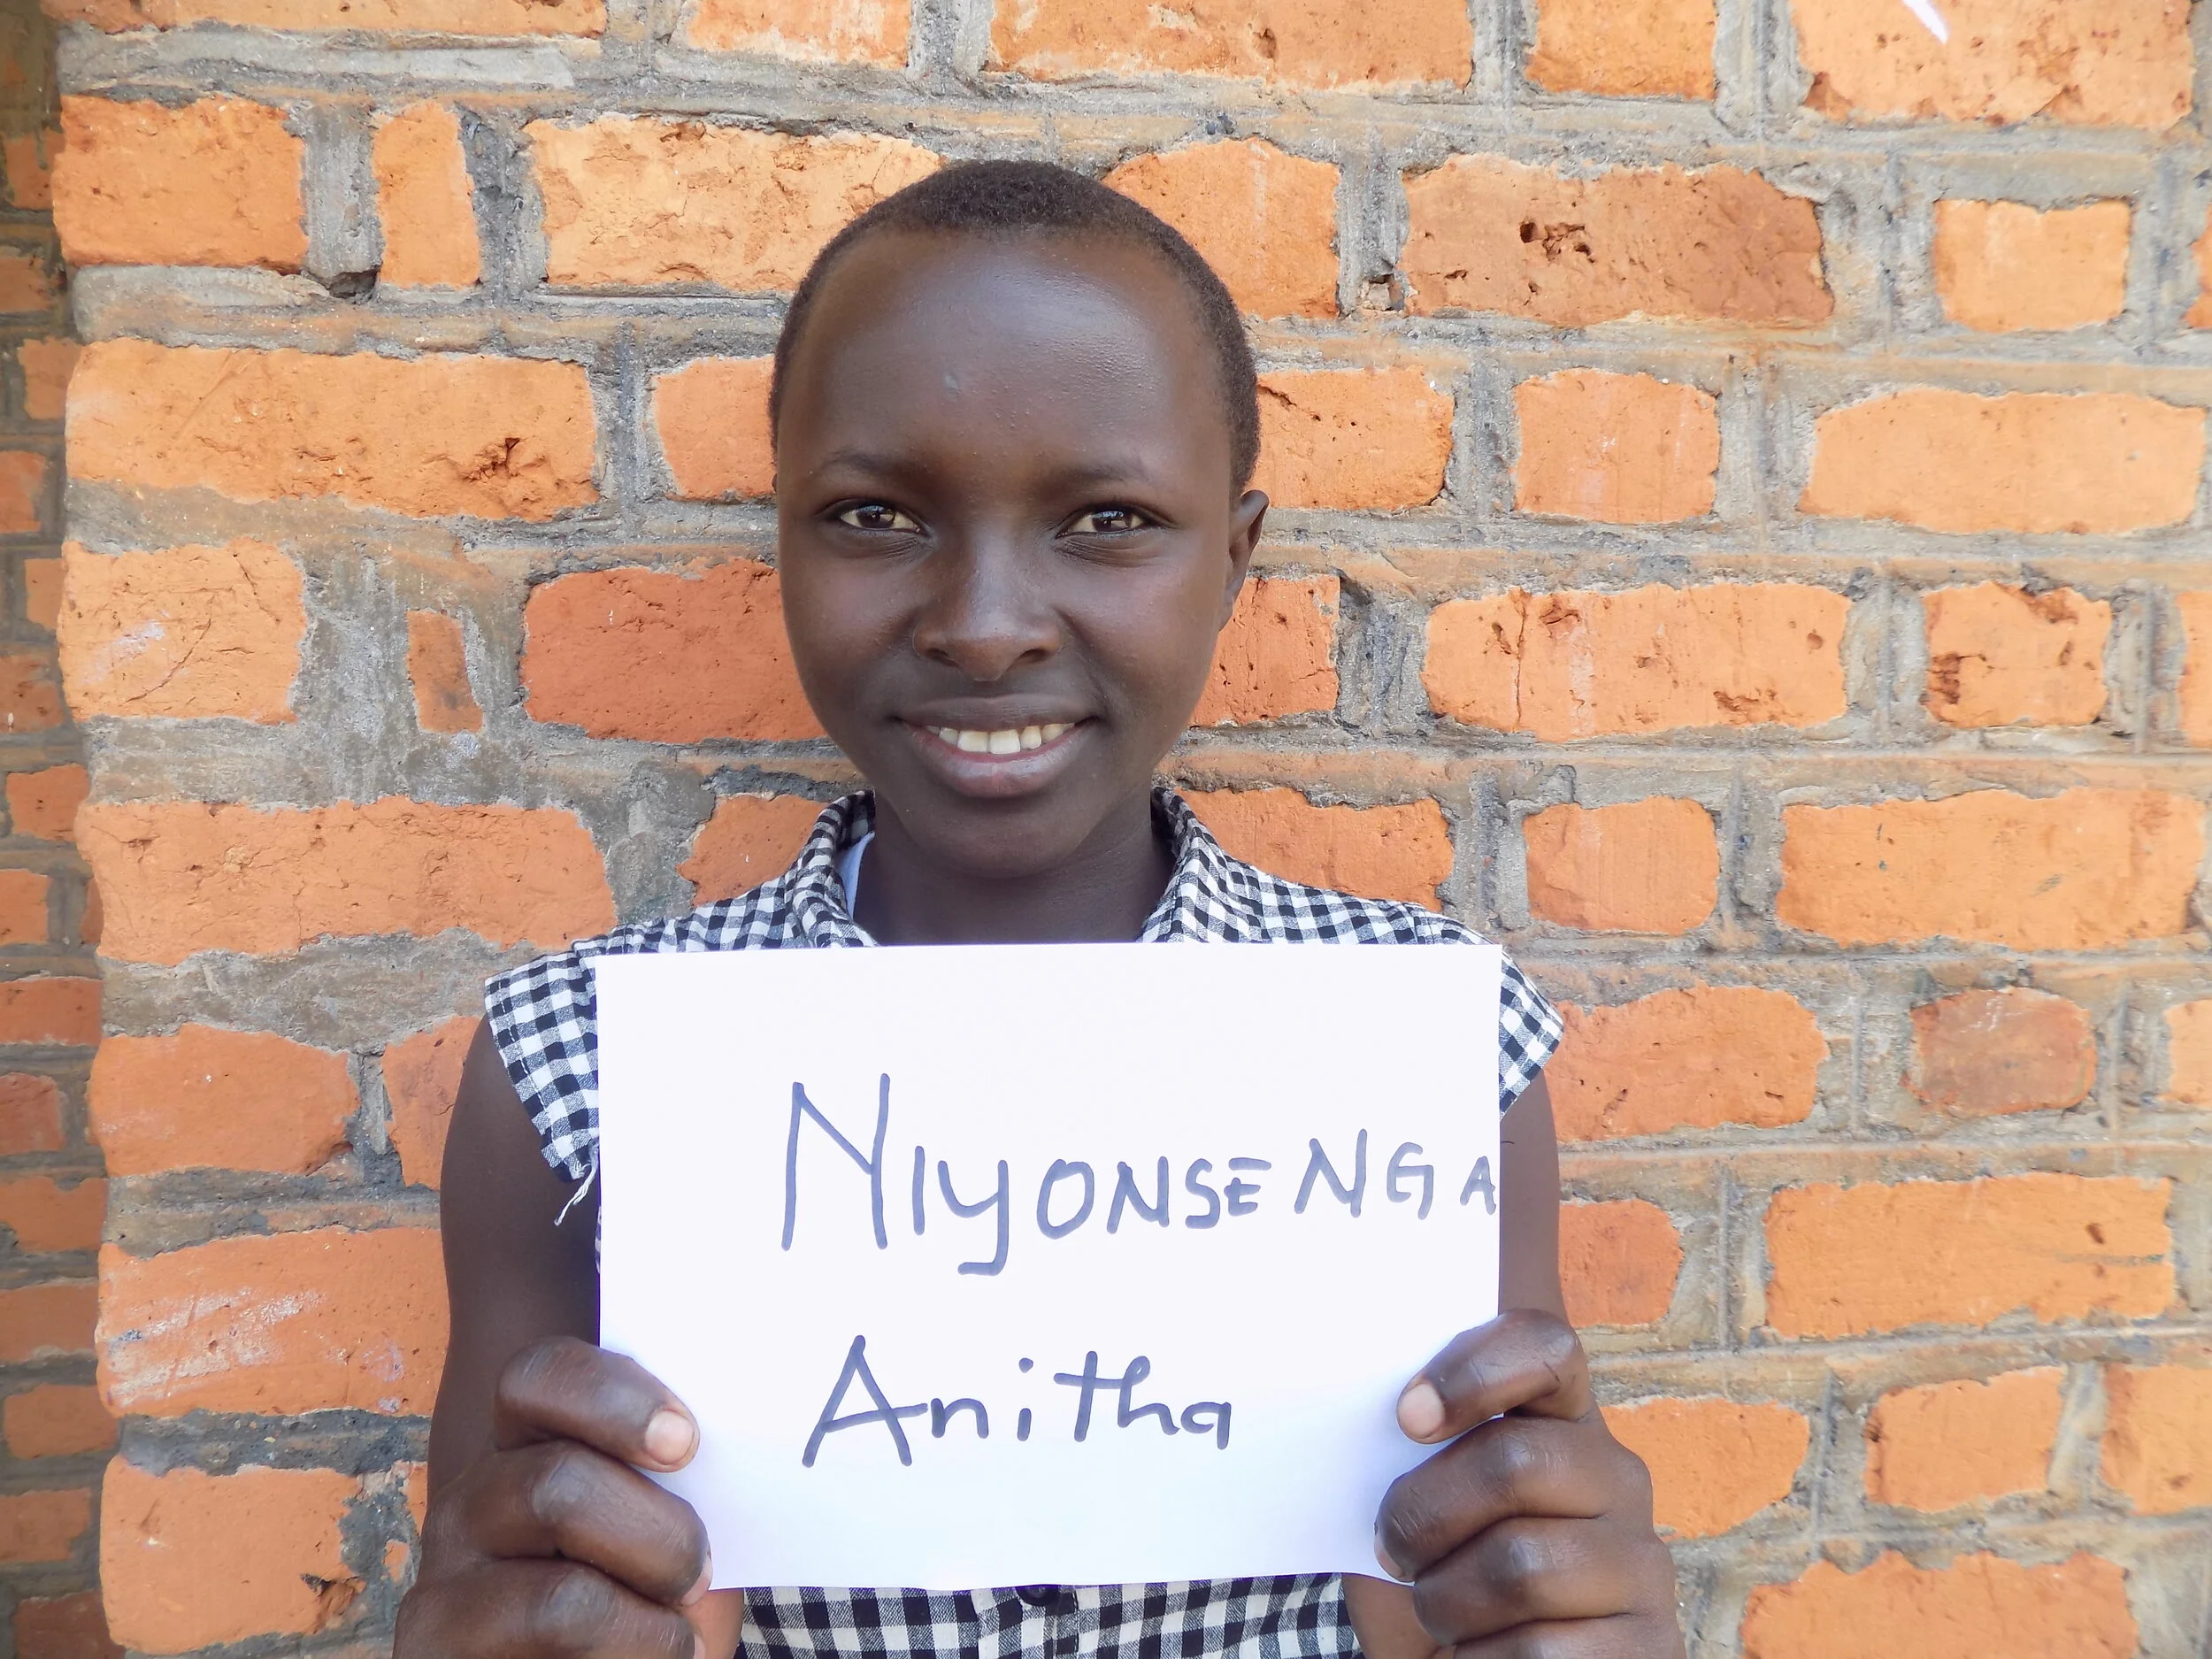 NIyONSENGA
Anitha